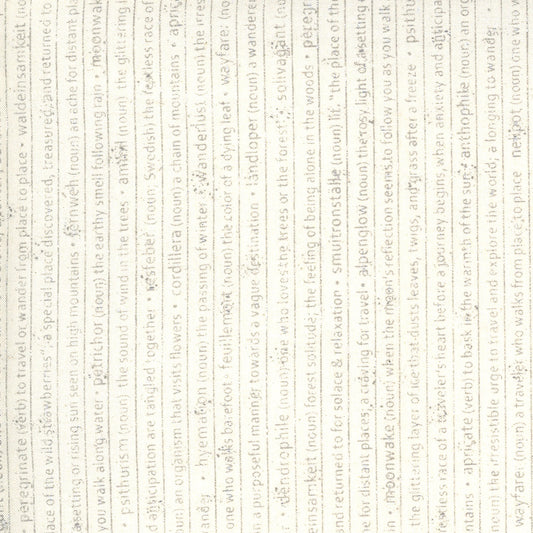 • peregrinate (verb) to travel or wander from place to place • waldeinsamkeit (n
lace of the wild stowberries": a special place discovered, treasured, and returned to
a setting or rising sun seen on high mountains • fernweh (noun) an ache for distant pl
you walk along water • petrichor (noun) the earthy smell following rain • moonwak
• psithurism (noun) the sound of wind in the trees • ammil (noun) the glittering l
d anticipation are tangled together • resfeber (noun, Swedish) the restless race of
oun) an organism that visits flowers • cordillera (noun) a chain of mountains • apri
ander • hyemation (noun) the passing of winter • wanderlust (noun) the irres
one who walks barefoot • feuillemort (noun) the color of a dying leaf • wayfarer (no
n a purposeful manner towards a vague destination • landloper (noun) a wanderer
r • dendrophile (noun) one who loves the trees or the forest • solivagant (no
einsamkeit (noun) forest solitude; the feeling of being alone in the woods • peregr
and returned to for solace & relaxation • smultronstalle (noun) lit. "the place of th
he for distant places; a craving for travel • alpenglow (noun) the rosy light of a setting
un • moonwake (noun) when the moon's reflection seems to follow you as you walk
the glittering layer of ice that dusts leaves, twigs, and grass after a freeze • psithu
restless race of a traveler's heart before a journey begins, when anxiety and anticipa
ntains • apricate (verb) to bask in the warmth of the sun • anthophile (noun) an org
noun) the irresistible urge to travel and explore the world; a longing to wander •
wayfarer (noun) a traveler who walks from place to place